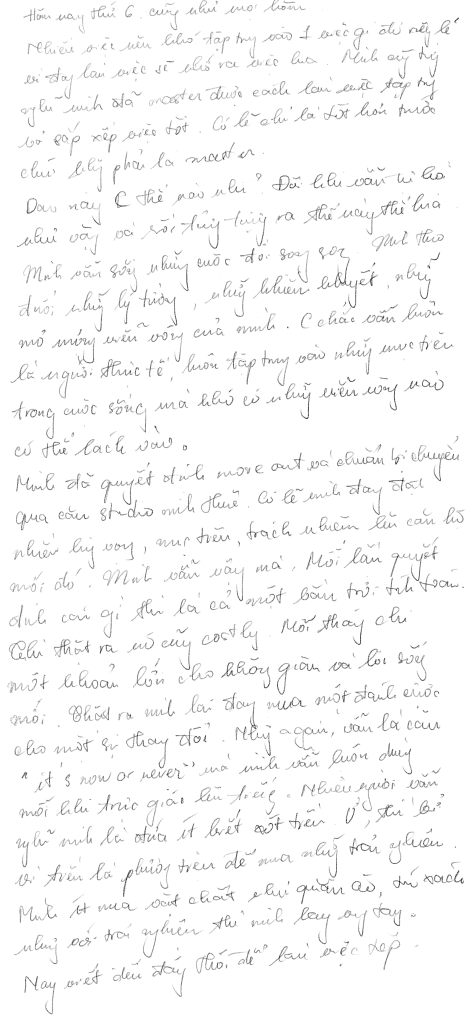 Hôm nay thứ 6. cũng như mọi hôm
Nhiều việc nên khó tập trung vào 1 việc gì đó nếu lỡ
vì đây làm việc sẽ nhớ ra việc kia. Mình cứ tưởng
nghĩ mình đã master được cách làm việc tập trung
và sắp xếp việc tốt. Có lẽ chỉ là tốt hơn trước
chứ không phải là master.
Dạo này C thế nào nhỉ? Đã khi vẫn vì hỏi
như vậy và rồi tưởng tượng ra thế này thế kia
Mình vẫn sống những cuộc đời song song. Mình theo
đuổi những lý tưởng, những khiếm khuyết, những
mơ mộng viễn vông của mình. C chắc vẫn luôn
là người thực tế, luôn tập trung vào những mục tiêu
trong cuộc sống mà khó có những viễn vông nào
có thể lách vào.
Mình đã quyết định move out và chuẩn bị chuyển
qua căn studio mình thuê. Có lẽ mình đang đặt
nhiều hy vọng, mục tiêu, trách nhiệm lên căn hộ
mới đó. Mình vẫn vậy mà. Mỗi lần quyết
định cái gì thì là cả một bầu trời tính toán.
Chi thật ra nó cũng costly. Mỗi tháng chi
một khoản lớn cho không gian và lối sống
mới. Thật ra mình lại đang mua một đánh cược
cho một sự thay đổi. Nhưng again, vẫn là câu
"it's now or never" mà mình vẫn luôn dùng
mỗi khi trực giác lên tiếng. Nhiều người vẫn
nghĩ mình là đứa ít biết xót tiền. Ừ, thì bởi
vì tiền là phương tiện để mua những trải nghiệm.
Mình ít mua vật chất như quần áo, túi xách
nhưng với trải nghiệm thì mình hay vung tay.
Nay viết đến đây thôi để làm việc tiếp.